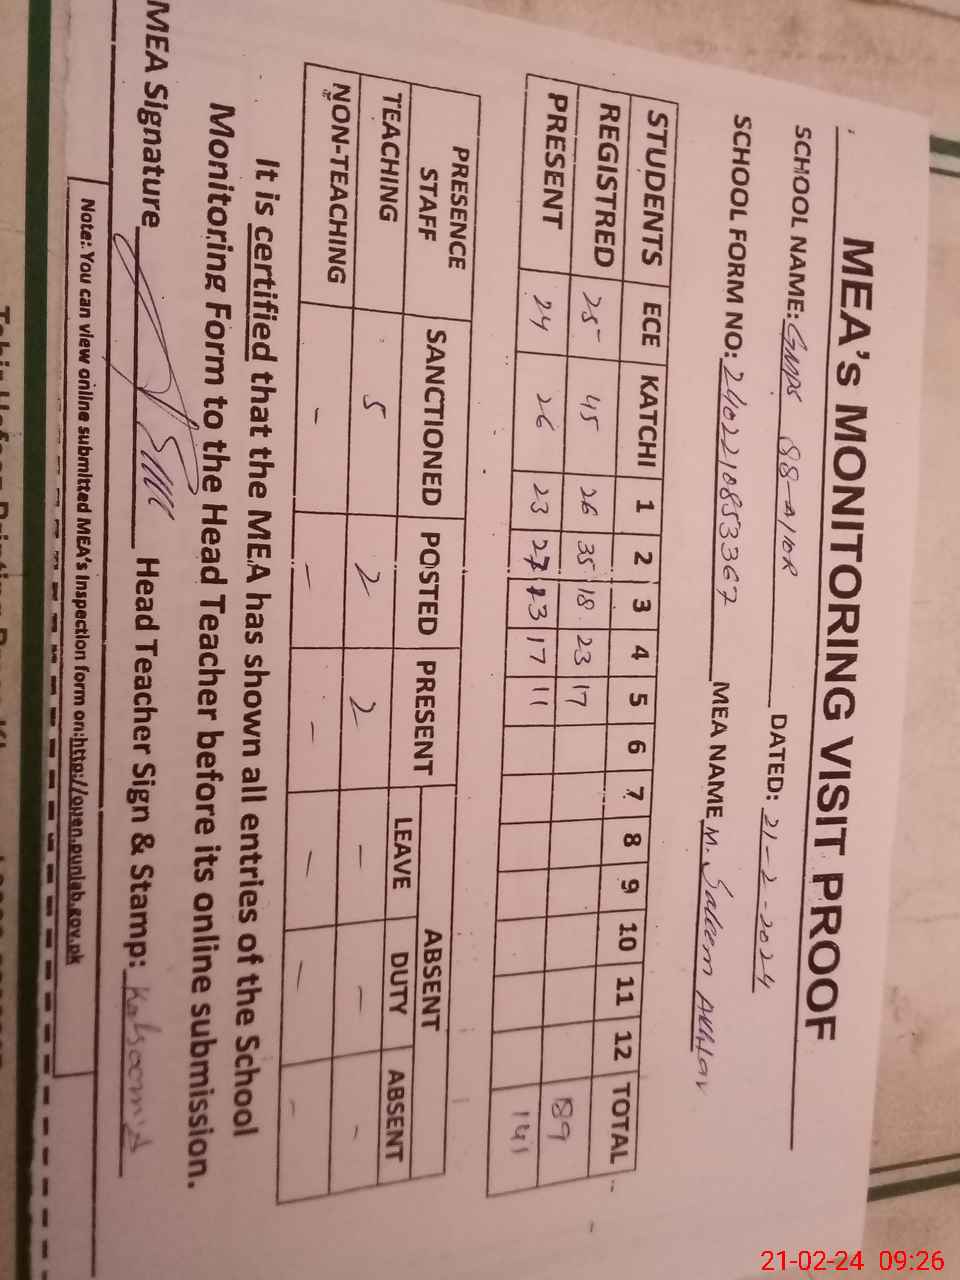 MEA's MONITORING VISIT PROOF
SCHOOL NAME: GMPS 88-A/10R DATED: 21-2-2024
SCHOOL FORM NO: 24022210853367 MEA NAME M. Saleem Akhtar
STUDENTS ECE KATCHI 1 2 3 4 5 6 7 8 9 10 11 12 TOTAL
REGISTRED 25 45 26 35 18 23 17 189
PRESENT 24 26 23 27 13 17 11 141
PRESENCE STAFF SANCTIONED POSTED PRESENT ABSENT
LEAVE DUTY ABSENT
TEACHING 5 2 2 - - -
NON-TEACHING - - - - - -
It is certified that the MEA has shown all entries of the School
Monitoring Form to the Head Teacher before its online submission.
MEA Signature Head Teacher Sign & Stamp:
Note:. You can view online submitted MEA's inspection form on:http://open.punjab.gov.pk
21-02-24 09:26